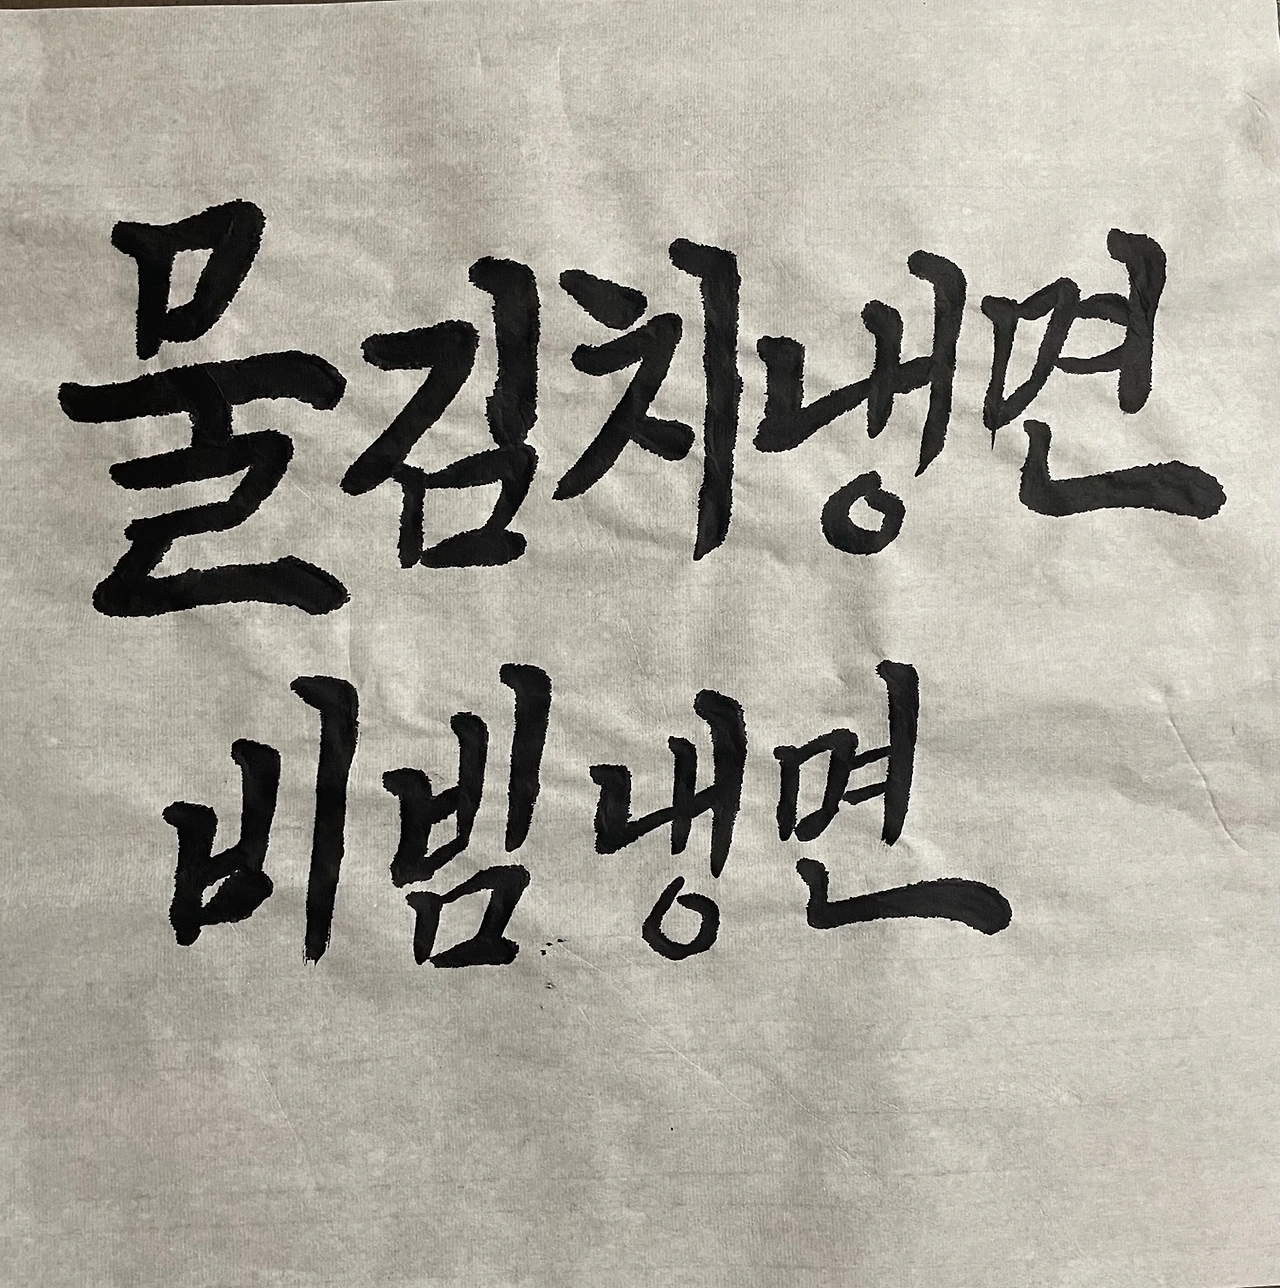 물김치냉면
비빔냉면